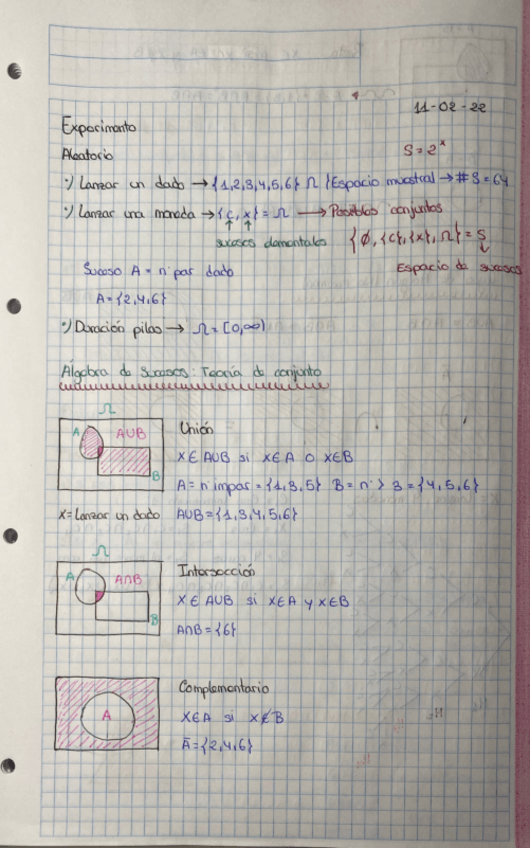 11-02-22
Experimento
Aleatorio
S = 2^x
·) Lanzar un dado → {1,2,3,4,5,6} Ω } Espacio muestral → #S = 64
·) Lanzar una moneda → {c, x} = Ω → Posibles conjuntos
sucesos elementales {∅, {c}, {x}, Ω} = S
Suceso A = nº par dado
Espacio de sucesos
A = {2,4,6}
·) Duración pilas → Ω = [0,∞)
Álgebra de Sucesos: Teoría de conjunto
Ω
A AUB B
Unión
X ∈ AUB si X∈A o X∈B
A = nº impar = {1,3,5} B = nº > 3 = {4,5,6}
X = Lanzar un dado AUB = {1,3,4,5,6}
Ω
A A∩B B
Intersección
X ∈ AUB si X∈A y X∈B
A∩B = {6}
A
Complementario
X∈A si X∉B
Ā = {2,4,6}